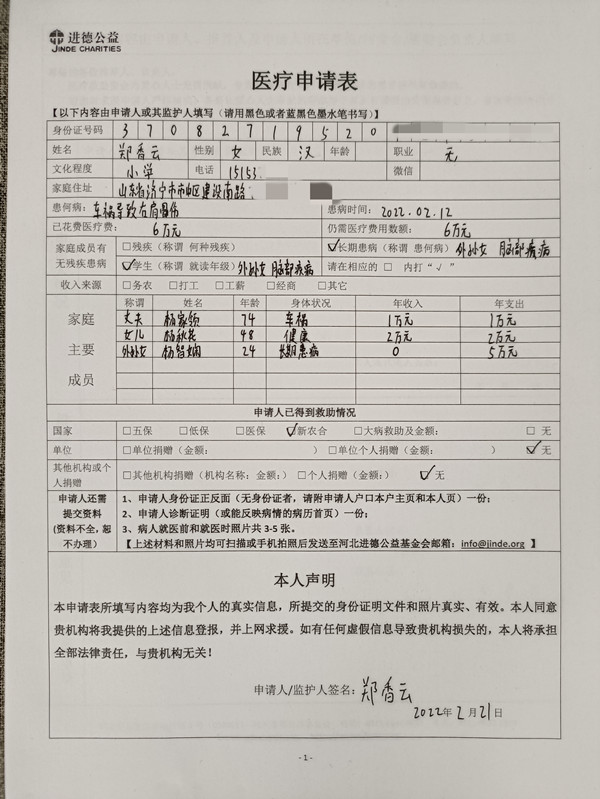 进德公益
JINDE CHARITIES
医疗申请表
【以下内容由申请人或其监护人填写（请用黑色或者蓝黑色墨水笔书写）】
身份证号码 3 7 0 8 2 7 1 9 5 2 0
姓名 郑香云 性别 女 民族 汉 年龄 职业 无
文化程度 小学 电话 15153 微信
家庭住址 山东省济宁市市中区建设南路
患何病： 车祸导致右肩 患病时间： 2022.02.12
已花费医疗费： 6万元 仍需医疗费用数额： 6万元
家庭成员有无残疾患病 □残疾（称谓 何种残疾） ☑长期患病（称谓 患何病） 外孙女 脑部疾病
☑学生（称谓 就读年级） 外孙女 脑部疾病 请在相应的 □ 内打“√”
收入来源 □务农 □打工 □工薪 □经商 □其它
家庭主要成员 称谓 姓名 年龄 身体状况 年收入 年支出
丈夫 杨家领 74 车祸 1万元 1万元
女儿 杨秋花 48 健康 2万元 2万元
外孙女 杨智娴 24 长期患病 0 5万元
申请人已得到救助情况
国家 □五保 □低保 □医保 ☑新农合 □大病救助及金额： □ 无
单位 □单位捐赠（金额： ） □单位个人捐赠（金额： ） ☑无
其他机构或个人捐赠 □其他机构捐赠（机构名称：金额：） □个人捐赠（金额：） ☑无
申请人还需提交资料(资料不全，恕不办理） 1、申请人身份证正反面（无身份证者，请附申请人户口本户主页和本人页）一份；
2、申请人诊断证明（或能反映病情的病历首页）一份；
3、病人就医前和就医时照片共 3-5 张。
【上述材料和照片均可扫描或手机拍照后发送至河北进德公益基金会邮箱：info@jinde.org 】
本人声明
本申请表所填写内容均为我个人的真实信息，所提交的身份证明文件和照片真实、有效。本人同意
贵机构将我提供的上述信息登报，并上网求援。如有任何虚假信息导致贵机构损失的，本人将承担
全部法律责任，与贵机构无关！
申请人/监护人签名： 郑香云
2022年 2 月 21日
- 1 -